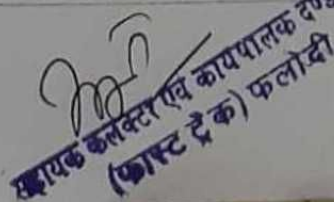 सहायक कलेक्टर एवं कार्यपालक दण्ड
(फास्ट ट्रैक) फलोदी